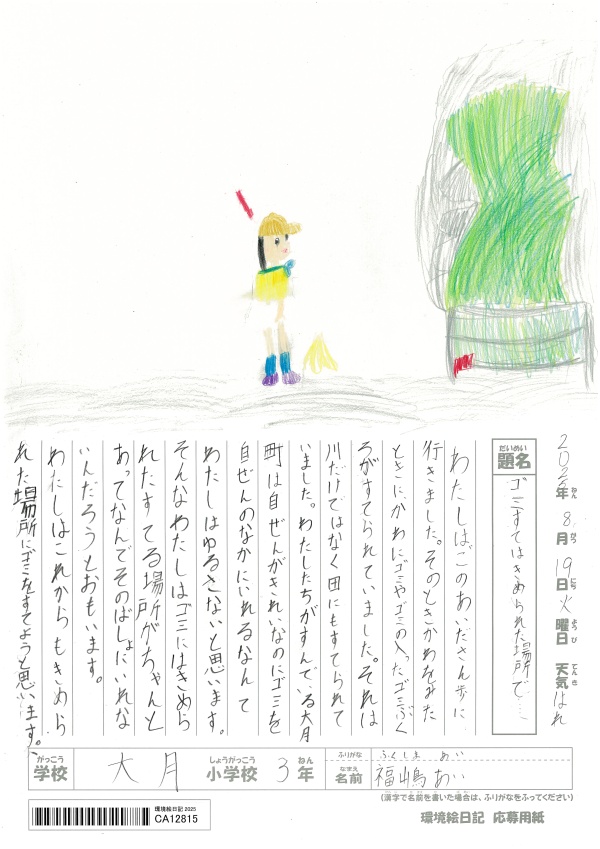 2025年8月19日火曜日 天気はれ
ねん がつ にち ようび てんき
だいめい
題名 ゴミすてはきめられた場所で…
わたしは、このあいださん歩に
行きました。そのときかわをみた
ときにかわにゴミやゴミの入ったゴミぶく
ろがすてられていました。それは
川だけではなく田にもすてられて
いました。わたしたちがすんでいる大月
町は自ぜんがきれいなのにゴミを
自ぜんのなかにいれるなんて
わたしはゆるさないと思います。
そんなわたしはゴミにはきめら
れたすてる場所がちゃんと
あってなんでそのばしょにいれな
いんだろうとおもいます。
わたしはこれからもきめら
れた場所にゴミをすてようと思います。
がっこう しょうがっこう ねん
学校 大月 小学校 3年
ふりがな ふくしま あい
なまえ
名前 福嶋あい
(漢字で名前を書いた場合は、ふりがなをふってください)
環境絵日記 2025
CA12815
環境絵日記 応募用紙